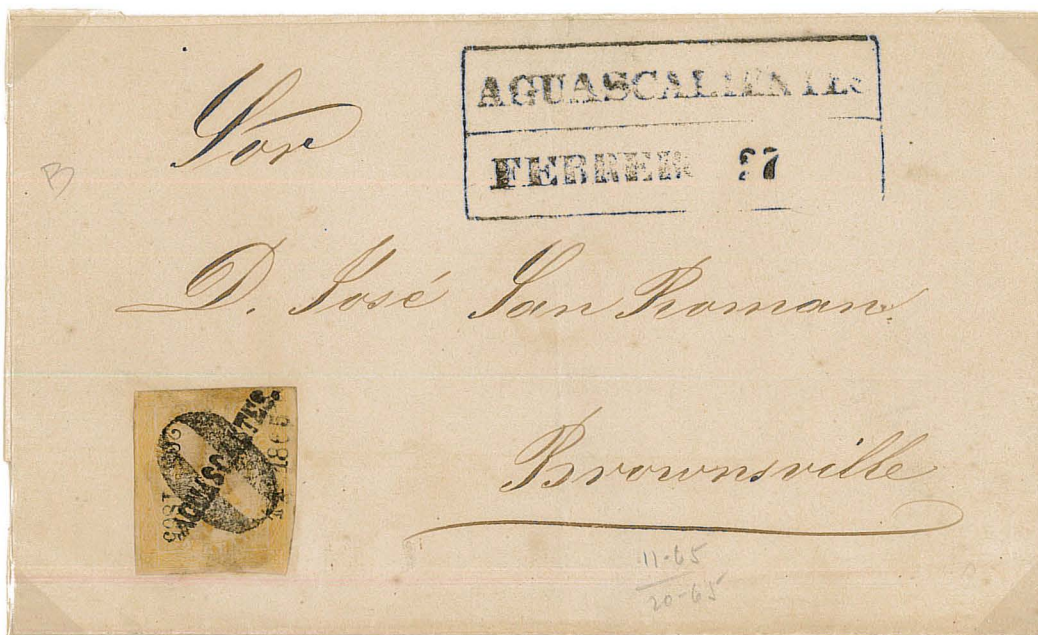 AGUASCALIENTES
FEBRERO 27
Sor
B
D. José San Roman.
Brownsville
AGUASCALIENTES.
1865
11-65
20-65